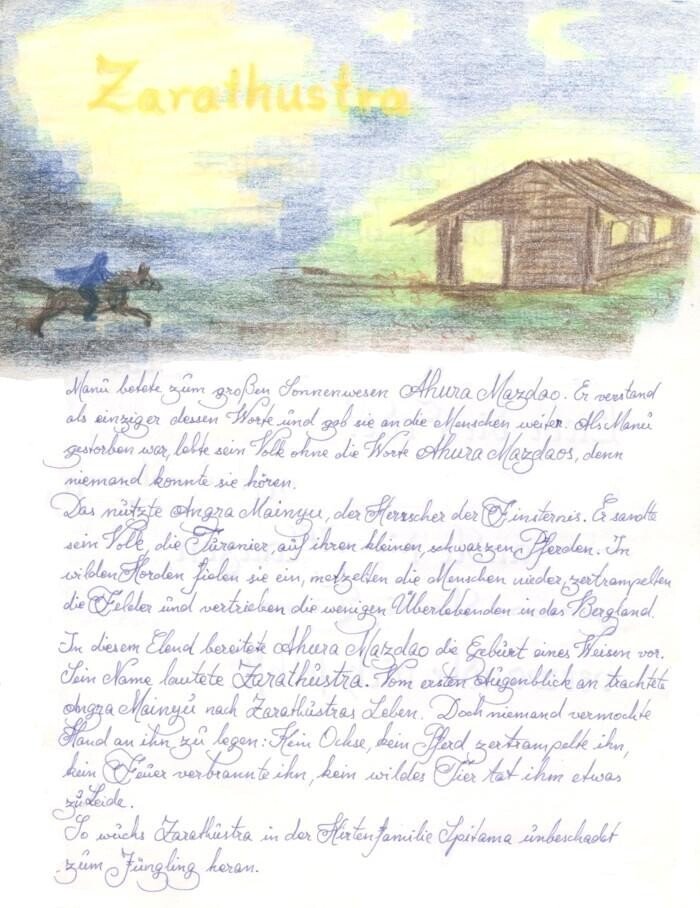 Zarathustra
Manu betete zum großen Sonnenwesen Ahura Mazdao. Er verstand
als einziger dessen Worte und gab sie an die Menschen weiter. Als Manu
gestorben war, lebte sein Volk ohne die Worte Ahura Mazdaos, denn
niemand konnte sie hören.
Das nützte Angra Mainyu, der Herrscher der Finsternis. Er sandte
sein Volk, die Turanier, auf ihren kleinen, schwarzen Pferden. In
wilden Horden fielen sie ein, metzelten die Menschen nieder, zertrampelten
die Felder und vertrieben die wenigen Überlebenden in das Bergland.
In diesem Elend bereitete Ahura Mazdao die Geburt eines Weisen vor.
Sein Name lautete Zarathustra. Vom ersten Augenblick an trachtete
Angra Mainyu nach Zarathustras Leben. Doch niemand vermochte
Hand an ihn zu legen: Kein Ochse, kein Pferd zertrampelte ihn,
kein Feuer verbrannte ihn, kein wildes Tier tat ihm etwas
zu Leide.
So wuchs Zarathustra in der Hirtenfamilie Spitama unbeschadet
zum Jüngling heran.